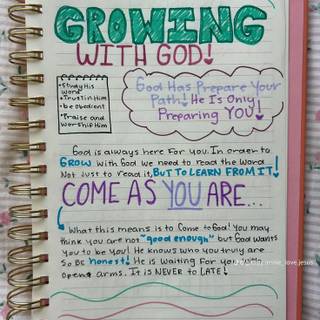 GROWING
WITH GOD!
•Study His
Word
•Trust in Him
•be obedient
•Praise and
worship Him
God Has Prepare Your
Path! He Is Only
Preparing YOU!
God is always here for you. In order to
GROW with God we need to read the Word
Not Just to read it, BUT TO LEARN FROM IT!
COME AS YOU ARE...
What this means is to Come to God! You may
think you are not "good enough" but God wants
you to be you! He knows who you truly are
so Be honest! He is waiting For you w
open arms. It is NEVER to LATE!